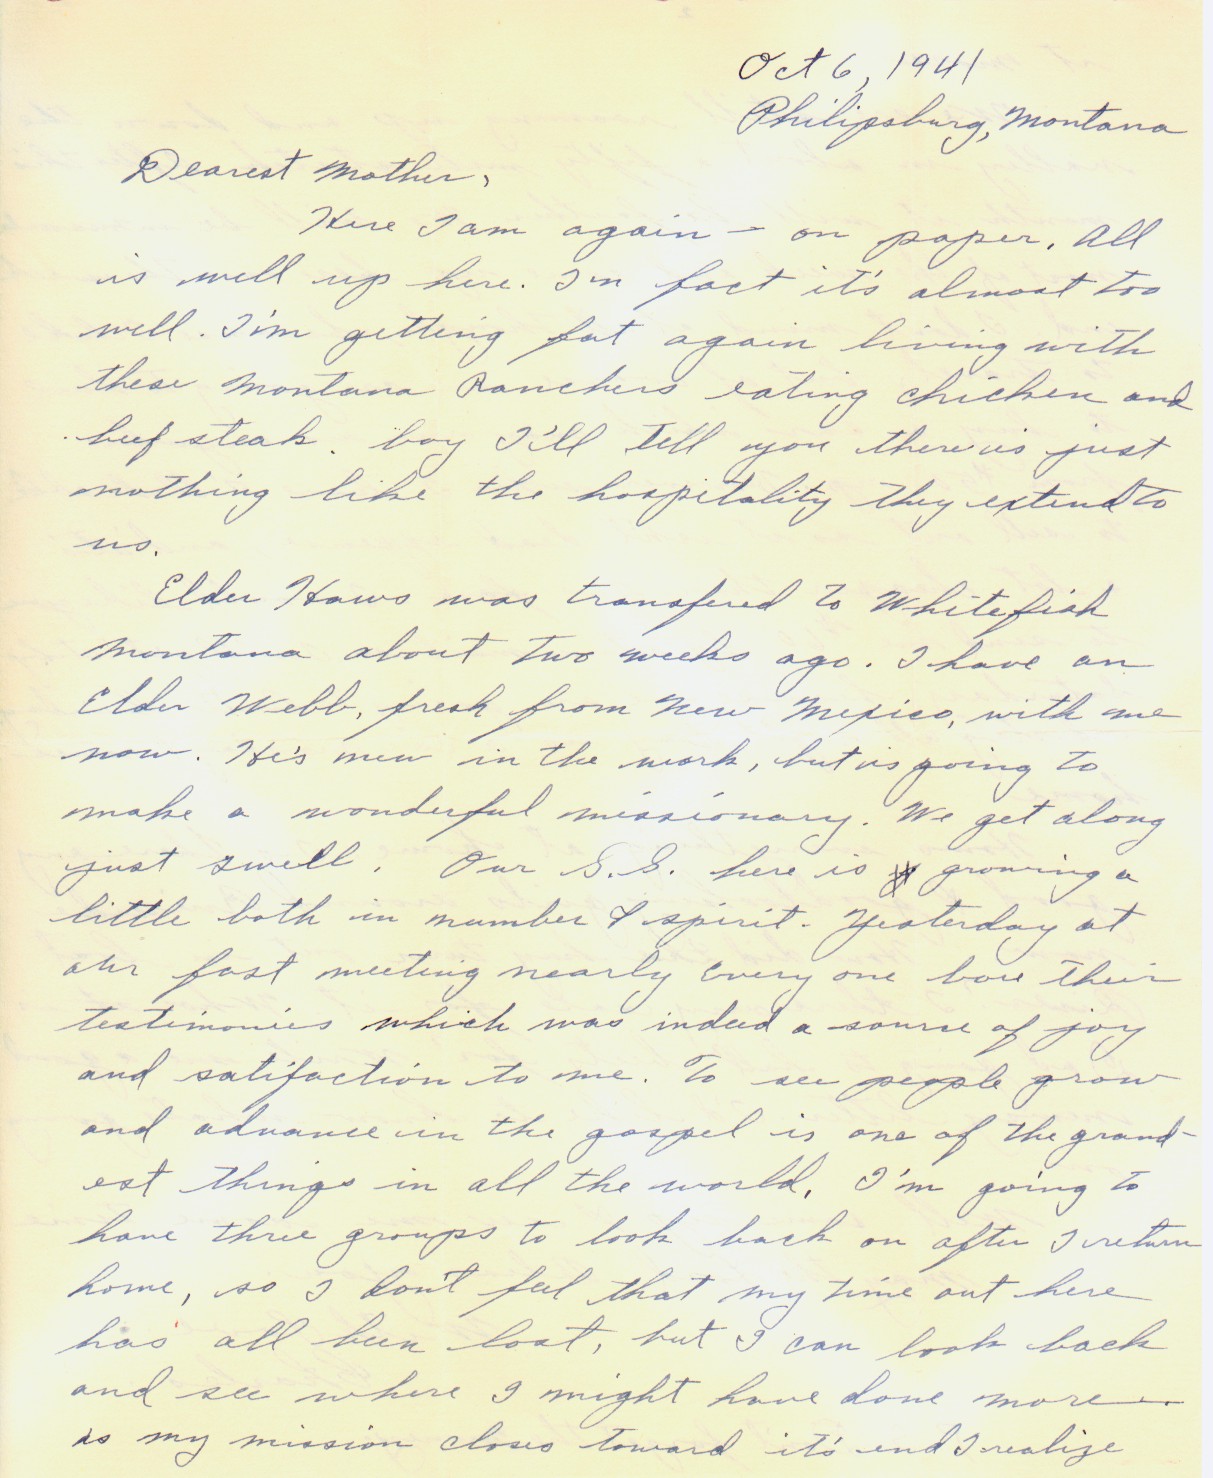 Oct 6, 1941
Philipsburg, Montana
Dearest Mother,
Here I am again — on paper. All
is well up here. In fact it's almost too
well. I'm getting fat again living with
these Montana Ranchers eating chicken and
beef steak. boy I'll tell you there is just
nothing like the hospitality they extend to
us.
Elder Haws was transfered to Whitefish
Montana about two weeks ago. I have an
Elder Webb, fresh from New Mexico, with me
now. He's new in the work, but is going to
make a wonderful missionary. We get along
just swell. Our S.S. here is growing a
little both in number & spirit. Yesterday at
our fast meeting nearly every one bore their
testimonies which was indeed a source of joy
and satifaction to me. To see people grow
and advance in the gospel is one of the grand-
est things in all the world. I'm going to
have three groups to look back on after I return
home, so I don't feel that my time out here
has all been lost, but I can look back
and see where I might have done more —
as my mission closes toward it's end I realize